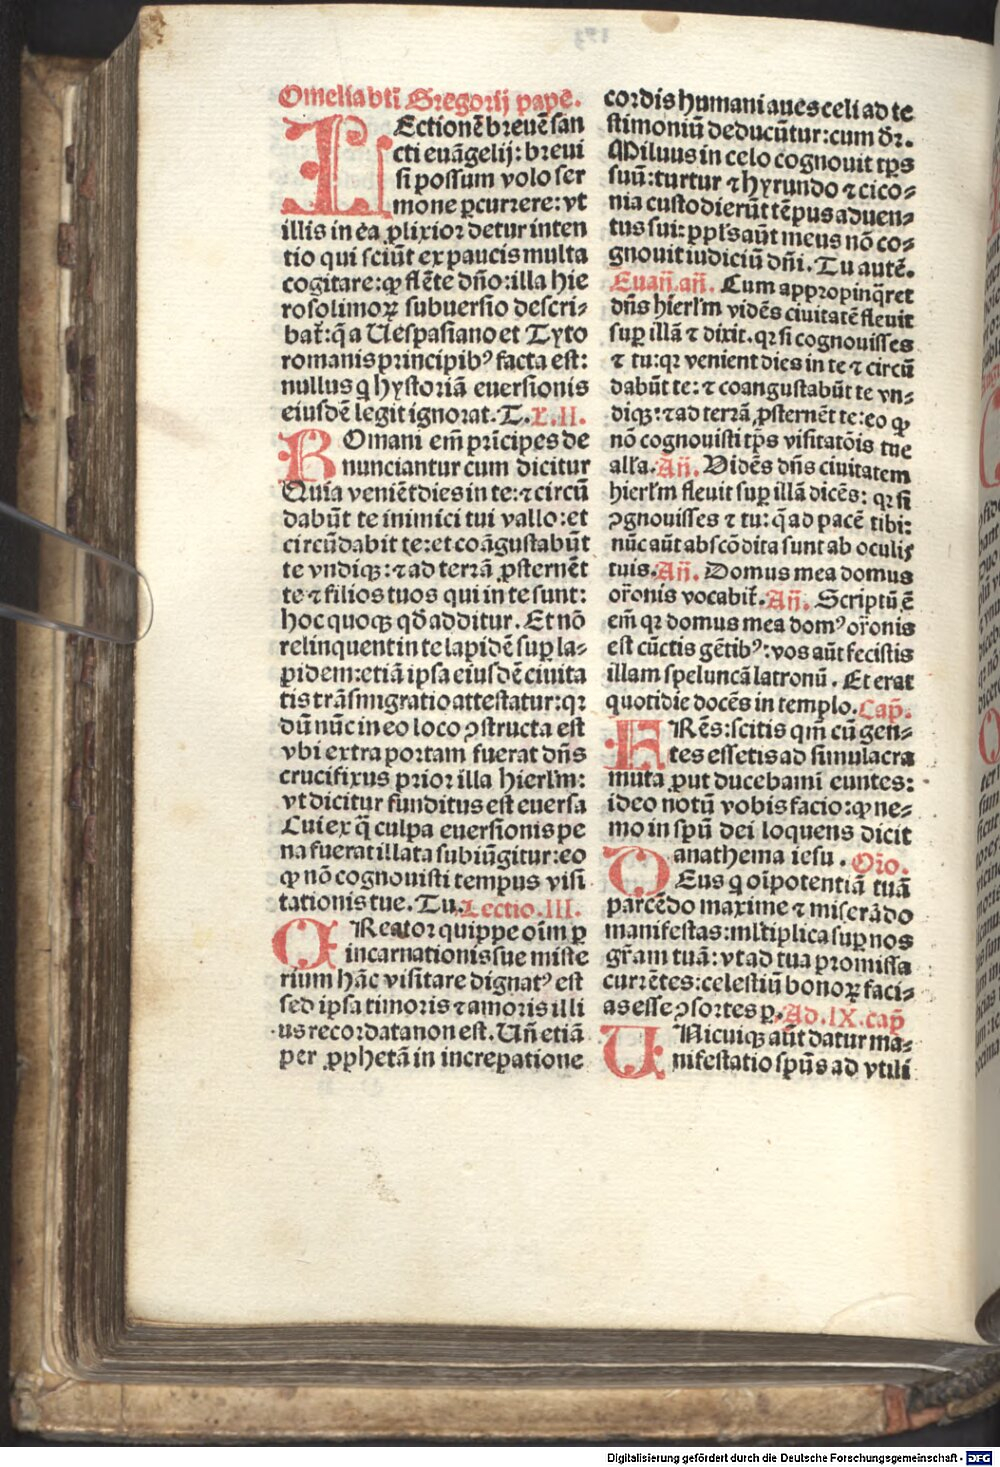 Omelia bti Gregorij pape.
LEctionē breuē san
cti euāgelij: breui
si possum volo ser
mone ꝑcurrere: vt
illis in ea ꝓlixior detur inten
tio qui sciūt ex paucis multa
cogitare: ꝙ flēte dño: illa hie
rosolimoꝝ subuersio descri⸗
bat̄: q̄ a Uespasiano et Tyto
romanis principibꝰ facta est:
nullus q hystoriā euersionis
eiusdē legit ignorat. T. L. II.
ROmani em̄ prīcipes de
nunciantur cum dicitur
Quia veniēt dies in te: ⁊ circū
dabūt te inimici tui vallo: et
circūdabit te: et coāgustabūt
te vndiqꝫ: ⁊ ad terrā ꝓsternēt
te ⁊ filios tuos qui in te sunt:
hoc quoqꝫ qđ additur. Et nō
relinquent in te lapidē suꝑ la⸗
pidem: etiā ipsa eiusdē ciuita
tis trāsmigratio attestatur: qꝛ
dū nūc in eo loco ꝯstructa est
vbi extra portam fuerat dn̄s
crucifixus prior illa hierlm̄:
vt dicitur funditus est euersa
Cui ex q̄ culpa euersionis pe
na fuerat illata subiūgitur: eo
ꝙ nō cognouisti tempus visi
tationis tue. Tu. Lectio. III.
CReator quippe oīm ꝑ
incarnationis sue miste
rium hāc visitare dignatꝰ est
sed ipsa timoris ⁊ amoris illi
us recordata non est. Uñ etiā
per ꝓphetā in increpatione
cordis humani aues celi ad te
stimoniū deducūtur: cum dr̄.
Miluus in celo cognouit tp̄s
suū: turtur ⁊ hyrundo ⁊ cico⸗
nia custodierūt tēpus aduen⸗
tus sui: ppl's aūt meus nō co⸗
gnouit iudiciū dn̄i. Tu autē.
Euañ. añ. Cum appropinq̄ret
dn̄s hierlm̄ vidēs ciuitatē fleuit
suꝑ illā ⁊ dixit. qꝛ si cognouisses
⁊ tu: qꝛ venient dies in te ⁊ circū
dabūt te: ⁊ coangustabūt te vn⸗
diqꝫ: ⁊ ad terrā ꝓsternēt te: eo ꝙ
nō cognouisti tp̄s visitatōis tue
alla. Añ. Vidēs dn̄s ciuitatem
hierlm̄ fleuit suꝑ illā dicēs: qꝛ si
ꝯgnouisses ⁊ tu: q̄ ad pacē tibi:
nūc aūt abscōdita sunt ab oculis
tuis. Añ. Domus mea domus
or̄onis vocabit̄. Añ. Scriptū ē
em̄ qꝛ domus mea domꝰ or̄onis
est cūctis gētibꝰ: vos aūt fecistis
illam speluncā latronū. Et erat
quotidie docēs in templo. Cap̄.
FRēs: scitis qm̄ cū gen⸗
tes essetis ad simulacra
muta ꝓut ducebamī euntes:
ideo notū vobis facio: ꝙ ne⸗
mo in spū dei loquens dicit
anathema iesu. Or̄o.
DEus q oīpotentiā tuā
parcēdo maxime ⁊ miserādo
manifestas: ml̄tiplica suꝑ nos
gr̄am tuā: vt ad tua promissa
currētes: celestiū bonoꝝ faci⸗
as esse ꝯsortes ꝑ. Ad. IX. cap̄
UNicuiqꝫ aūt datur ma⸗
nifestatio spūs ad vtili
Digitalisierung gefördert durch die Deutsche Forschungsgemeinschaft - DFG